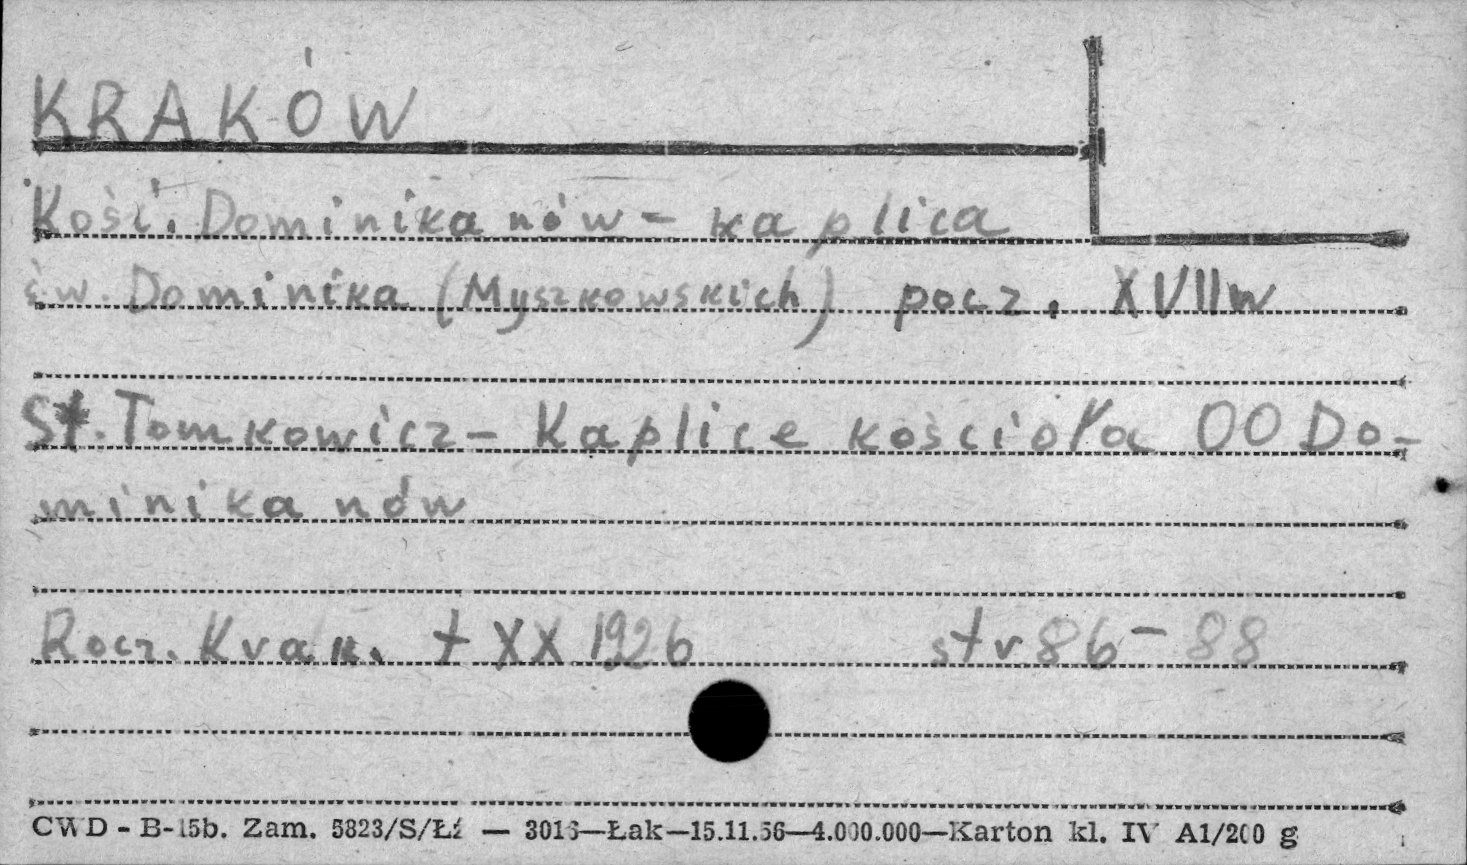 KRAKÓW
Kość. Dominikanów - kaplica
św. Dominika (Myszkowskich) pocz. XVIIw
St. Tomkowicz - Kaplice kościoła OO Do-
minikanów
Rocz. Krak. t XX 1926 str 86-88
CWD - B-15b. Zam. 5823/S/Łź — 3016—Łak—15.11.56—4.000.000—Karton kl. IV A1/200 g